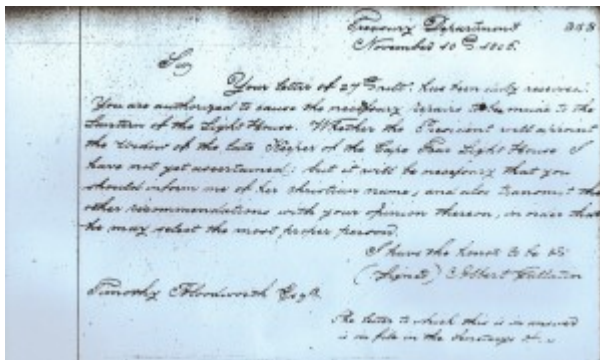 Treasury Department 358
November 10th 1806.
Sir
Your letter of 27th ulto: has been duly received.
You are authorized to cause the necessary repairs to be made to the
Lantern of the Light House. Whether the President will appoint
the Widow of the late Keeper of the Cape Fear Light House I
have not yet ascertained; but it will be necessary that you
should inform me of her christian name, and also transmit the
other recommendations with your opinion thereon, in order that
he may select the most proper person.
I have the honor to be &c
(Signed) Albert Gallatin
Timothy Bloodworth Esqr.
The letter to which this is an answer
is on file in the